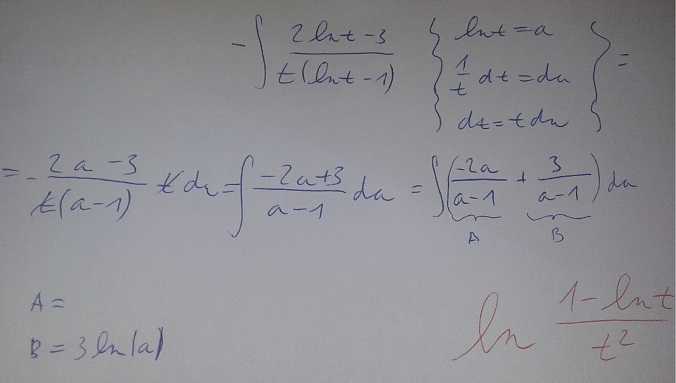 -∫ (2lnt-3)/(t(lnt-1)) { lnt=a
1/t dt=da
dt=tda } =
= - (2a-3)/(t(a-1)) t da = ∫ (-2a+3)/(a-1) da = ∫ ((-2a)/(a-1) + 3/(a-1)) da
A B
A =
B = 3 ln|a|
ln (1-lnt)/t²